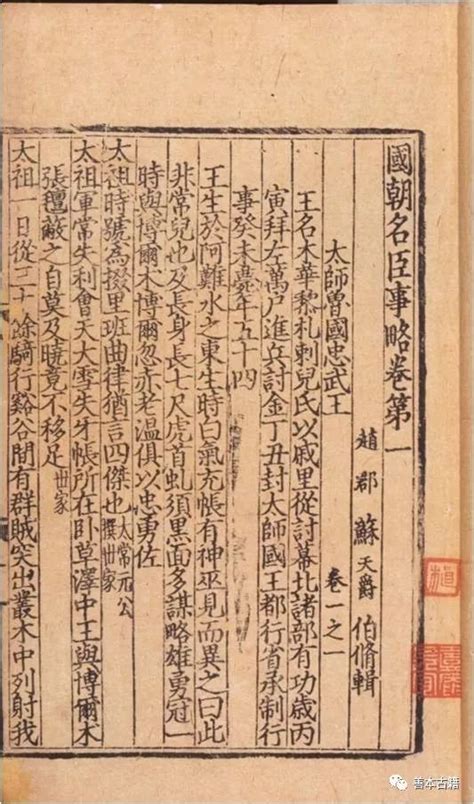 國朝名臣事略卷第一
趙郡蘇天爵伯脩輯
太師魯國忠武王 卷一之一
王名木華黎札剌兒氏以戚里從討幕北諸部有功歲丙
寅拜左萬户進兵討金丁丑封太師國王都行省承制行
事癸未薨年五十四
王生於阿難水之東生時白氣充帳有神巫見而異之曰此
非常兒也及長身長七尺虎首虬須黑面多謀略雄勇冠一
時與博爾木博爾忽赤老溫俱以忠勇佐
太祖時號為掇里班曲律猶言四傑也 太常元公撰世家
太祖軍常失利會天大雪失牙帳所在卧草澤中王與博爾木
張氊蔽之自莫及曉竟不移足 世家
太祖一日從三十餘騎行谿谷間有群賊突出叢木中列射我
善本古籍